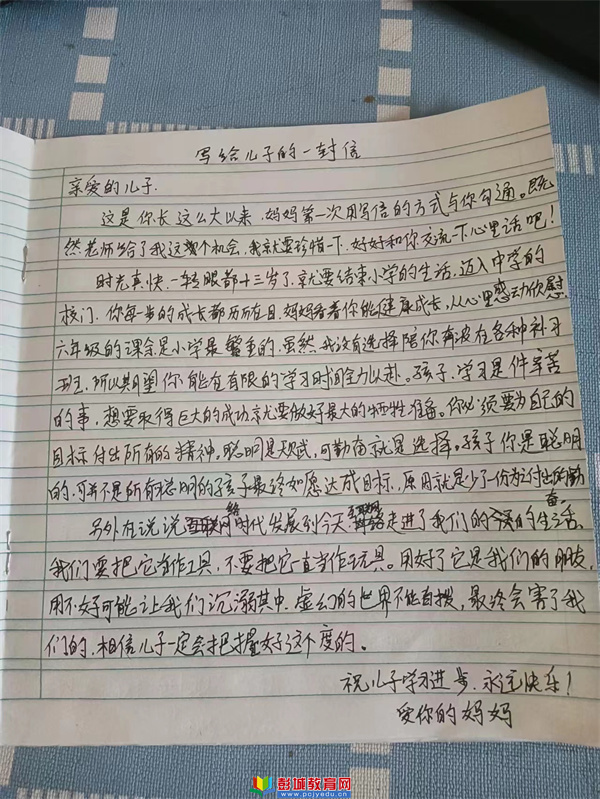 写给儿子的一封信
亲爱的儿子.
这是你长这么大以来,妈妈第一次用写信的方式与你勾通。既
然老师给了我这个机会,我就要珍惜一下,好好和你交流一下心里话吧!
时光真快,一转眼都十三岁了,就要结束小学的生活,迈入中学的
校门,你每步的成长都历历在目,妈妈看着你能健康成长,从心里感动欣慰.
六年级的课余是小学最繁重的,虽然我没有选择陪你奔波在各种补习
班,所以期望你能在有限的学习时间全力以赴。孩子,学习是件辛苦
的事,想要取得巨大的成功就要做好最大的牺牲准备。你必须要为自己的
目标付出所有的精神。聪明是天赋,可勤奋就是选择。孩子你是聪明
的,可并不是所有聪明的孩子最终如愿达成目标,原因就是少了一份为之付出的勤
奋。
另外在说说网络时代发展到今天,互联网走进了我们的生活,
我们要把它当作工具,不要把它一直当作玩具。用好了它是我们的朋友,
用不好可能让我们沉溺其中,虚幻的世界不能自拨,最终会害了我
们的,相信儿子一定会把握好这个度的。
祝儿子学习进步,永远快乐!
爱你的妈妈
彭城教育网
www.pcjyedu.cn